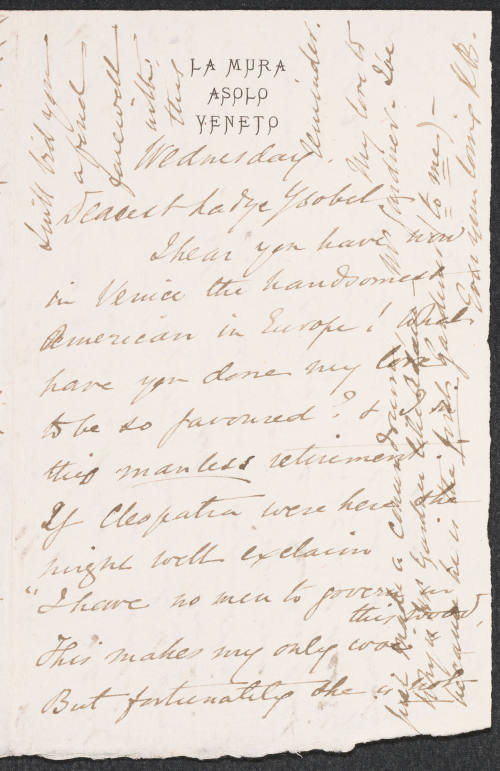 LA MURA
ASOLO
VENETO
Wednesday.
Dearest Ladye Ysobel
I hear you have now
in Venice the handsomest
American in Europe! What
have you done my love
to be so favoured? &
this manless retirement
If Cleopatra were here she
might well exclaim
"I have no men to govern in
this wood,
This makes my only woe
But fortunately she is not
I will bid you
a fond
farewell
with
this
reminder.
My love to
Mr Gardner. I've
just made a conundrum
Why is Mrs Gardner
because he is the first Gardner (to me)—
Ever your loving KB.